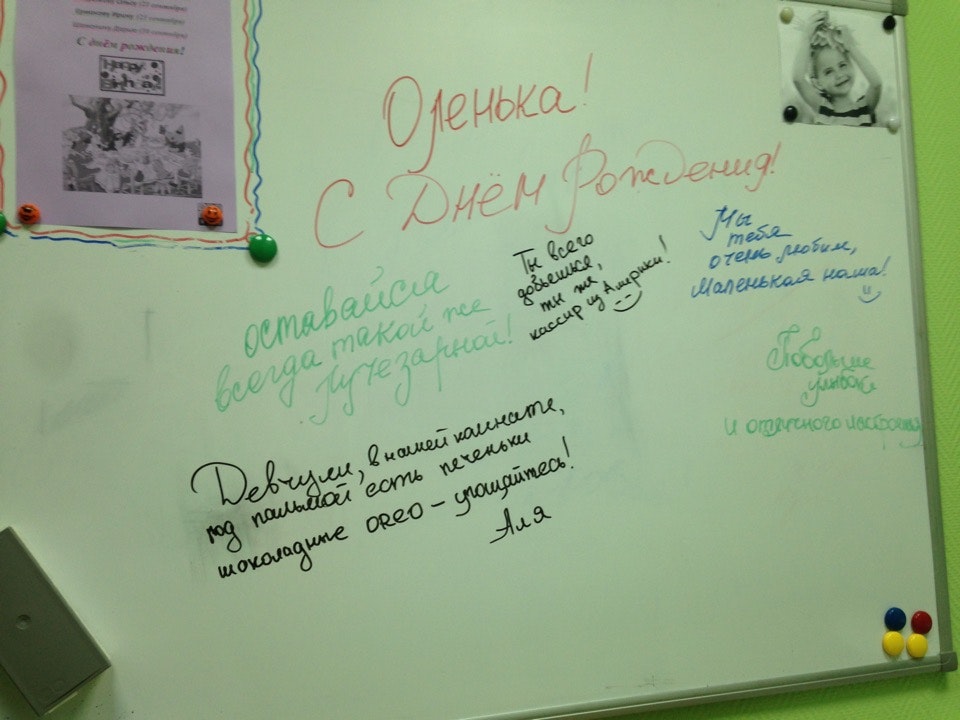 Ольге (27 сентября)
Ирину (27 сентября)
Дарью (29 сентября)
С днём рождения!
Happy
Birthday
Оленька!
С Днём Рождения!
оставайся
всегда такой же
лучезарной!
Ты всего
добьешься,
ты же,
кассир из Америки!
Мы
тебя
очень любим,
Маленькая наша!
Побольше
улыбок
и отличного настроения
Девчули, в нашей комнате,
под пальмой есть печеньки
шоколадные OREO – угощайтесь!
Аля